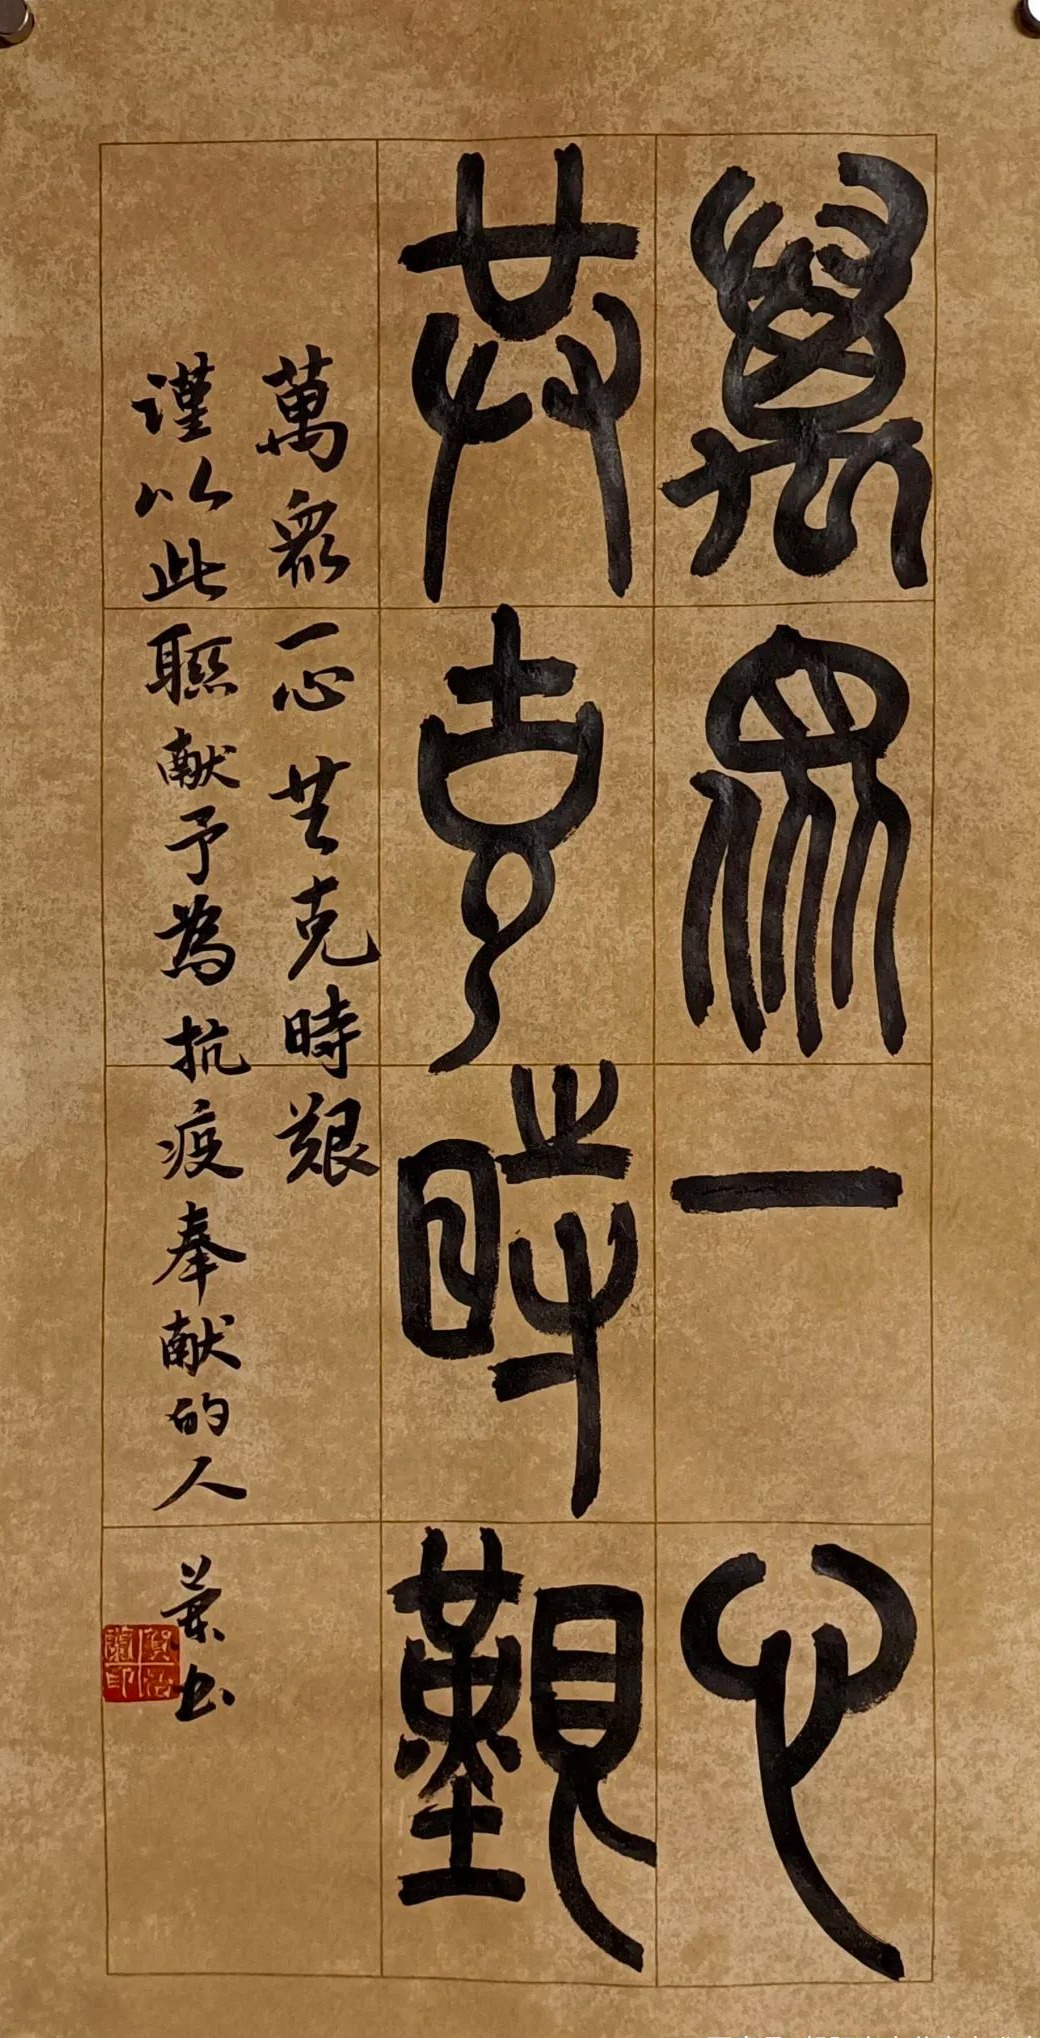 萬眾一心
共克時艱
萬眾一心共克時艱
謹以此聯献予為抗疫奉献的人
蘭书